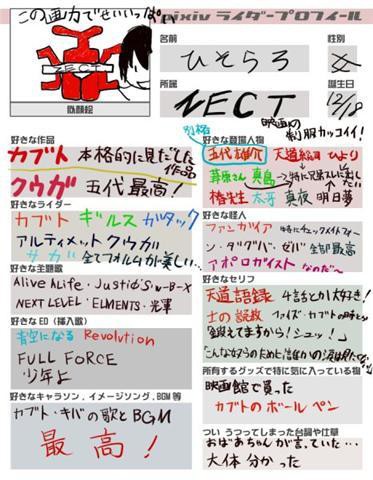 この画力でせいいっぱい
pixiv ライダープロフィール
ZECT
似顔絵
名前
ひそらろ
性別
女
所属
ZECT
映画の制服カッコイイ!
誕生日
12/18
好きな作品
カブト 本格的に見だした作品
クウガ 五代最高!
好きなライダー
カブト ギルス ガタック
アルティメットクウガ
サガ 全てフォルムが美しい…
好きな主題歌
Alive A Life・Justiφ's・W-B-X
NEXT LEVEL・ELMENTS・光輝
好きな ED (挿入歌)
青空になる Revolution
FULL FORCE
少年よ
好きなキャラソン、イメージソング、BGM 等
カブト・キバの歌とBGM
最高!
好きな登場人物
別格
五代雄介 天道総司 ひより
草原さん 真島
椿先生 太牙 真夜 明日夢
好きな怪人
ファンガイア
ン・ダグバ・ゼバ 全部最高
アポロガイスト なのだ〜
好きなセリフ
天道語録 4言舌とか大好き!
士の説教 ファイズ・カブトの時とか
「鍛えてますから!シュッ!」
「こんな奴らのために誰かの涙は見たくない」
所有するグッズで特に気に入っている物
映画館で買った
カブトのボールペン
つい うつってしまった台詞や仕草
おばあちゃんが言っていた…
大体分かった